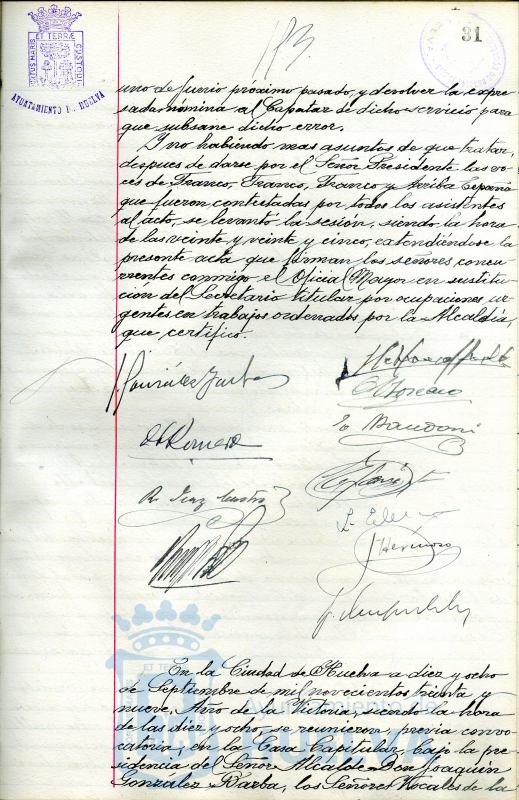 ET TERRÆ
CUSTODI
AYUNTAMIENTO D. HUELVA
31
uno de Junio próximo pasado, y devolver la expre-
sada nómina al Capataz de dicho servicio para
que subsane dicho error.
Y no habiendo mas asuntos de que tratar,
despues de darse por el Señor Presidente las vo-
ces de Franco, Franco, Franco y Arriba España
que fueron contestadas por todos los asistentes
al acto, se levantó la sesión, siendo la hora
de las veinte y veinte y cinco, extendiéndose la
presente acta que firman los señores concu-
rrentes conmigo el Oficial Mayor en sustitu-
ción del Secretario titular por ocupaciones ur-
gentes en trabajos ordenados por la Alcaldía,
que certifico.
J. González Barba
Romero
R. Diaz
J. Hermoso
ET TERRÆ
Ayuntamiento de
En la Ciudad de Huelva a diez y ocho
de Septiembre de mil novecientos treinta y
nueve, Año de la Victoria, siendo la hora
de las diez y ocho, se reunieron, previa convo-
catoria, en la Casa Capitular, bajo la pre-
sidencia del Señor Alcalde Don Joaquín
González Barba, los Señores Vocales de la